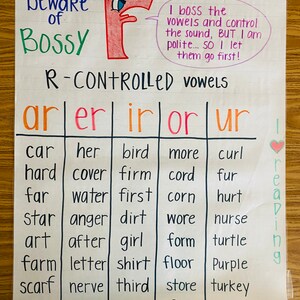 Beware
of
Bossy
I boss the
vowels and control
the sound, BUT I am
polite... so I let
them go first!
R-CONTROLLED vowels
ar er ir or ur
car her bird more curl
hard cover firm cord fur
far water first corn hurt
star anger dirt wore nurse
art after girl form turtle
farm letter shirt floor Purple
scarf nerve third store turkey
I
reading